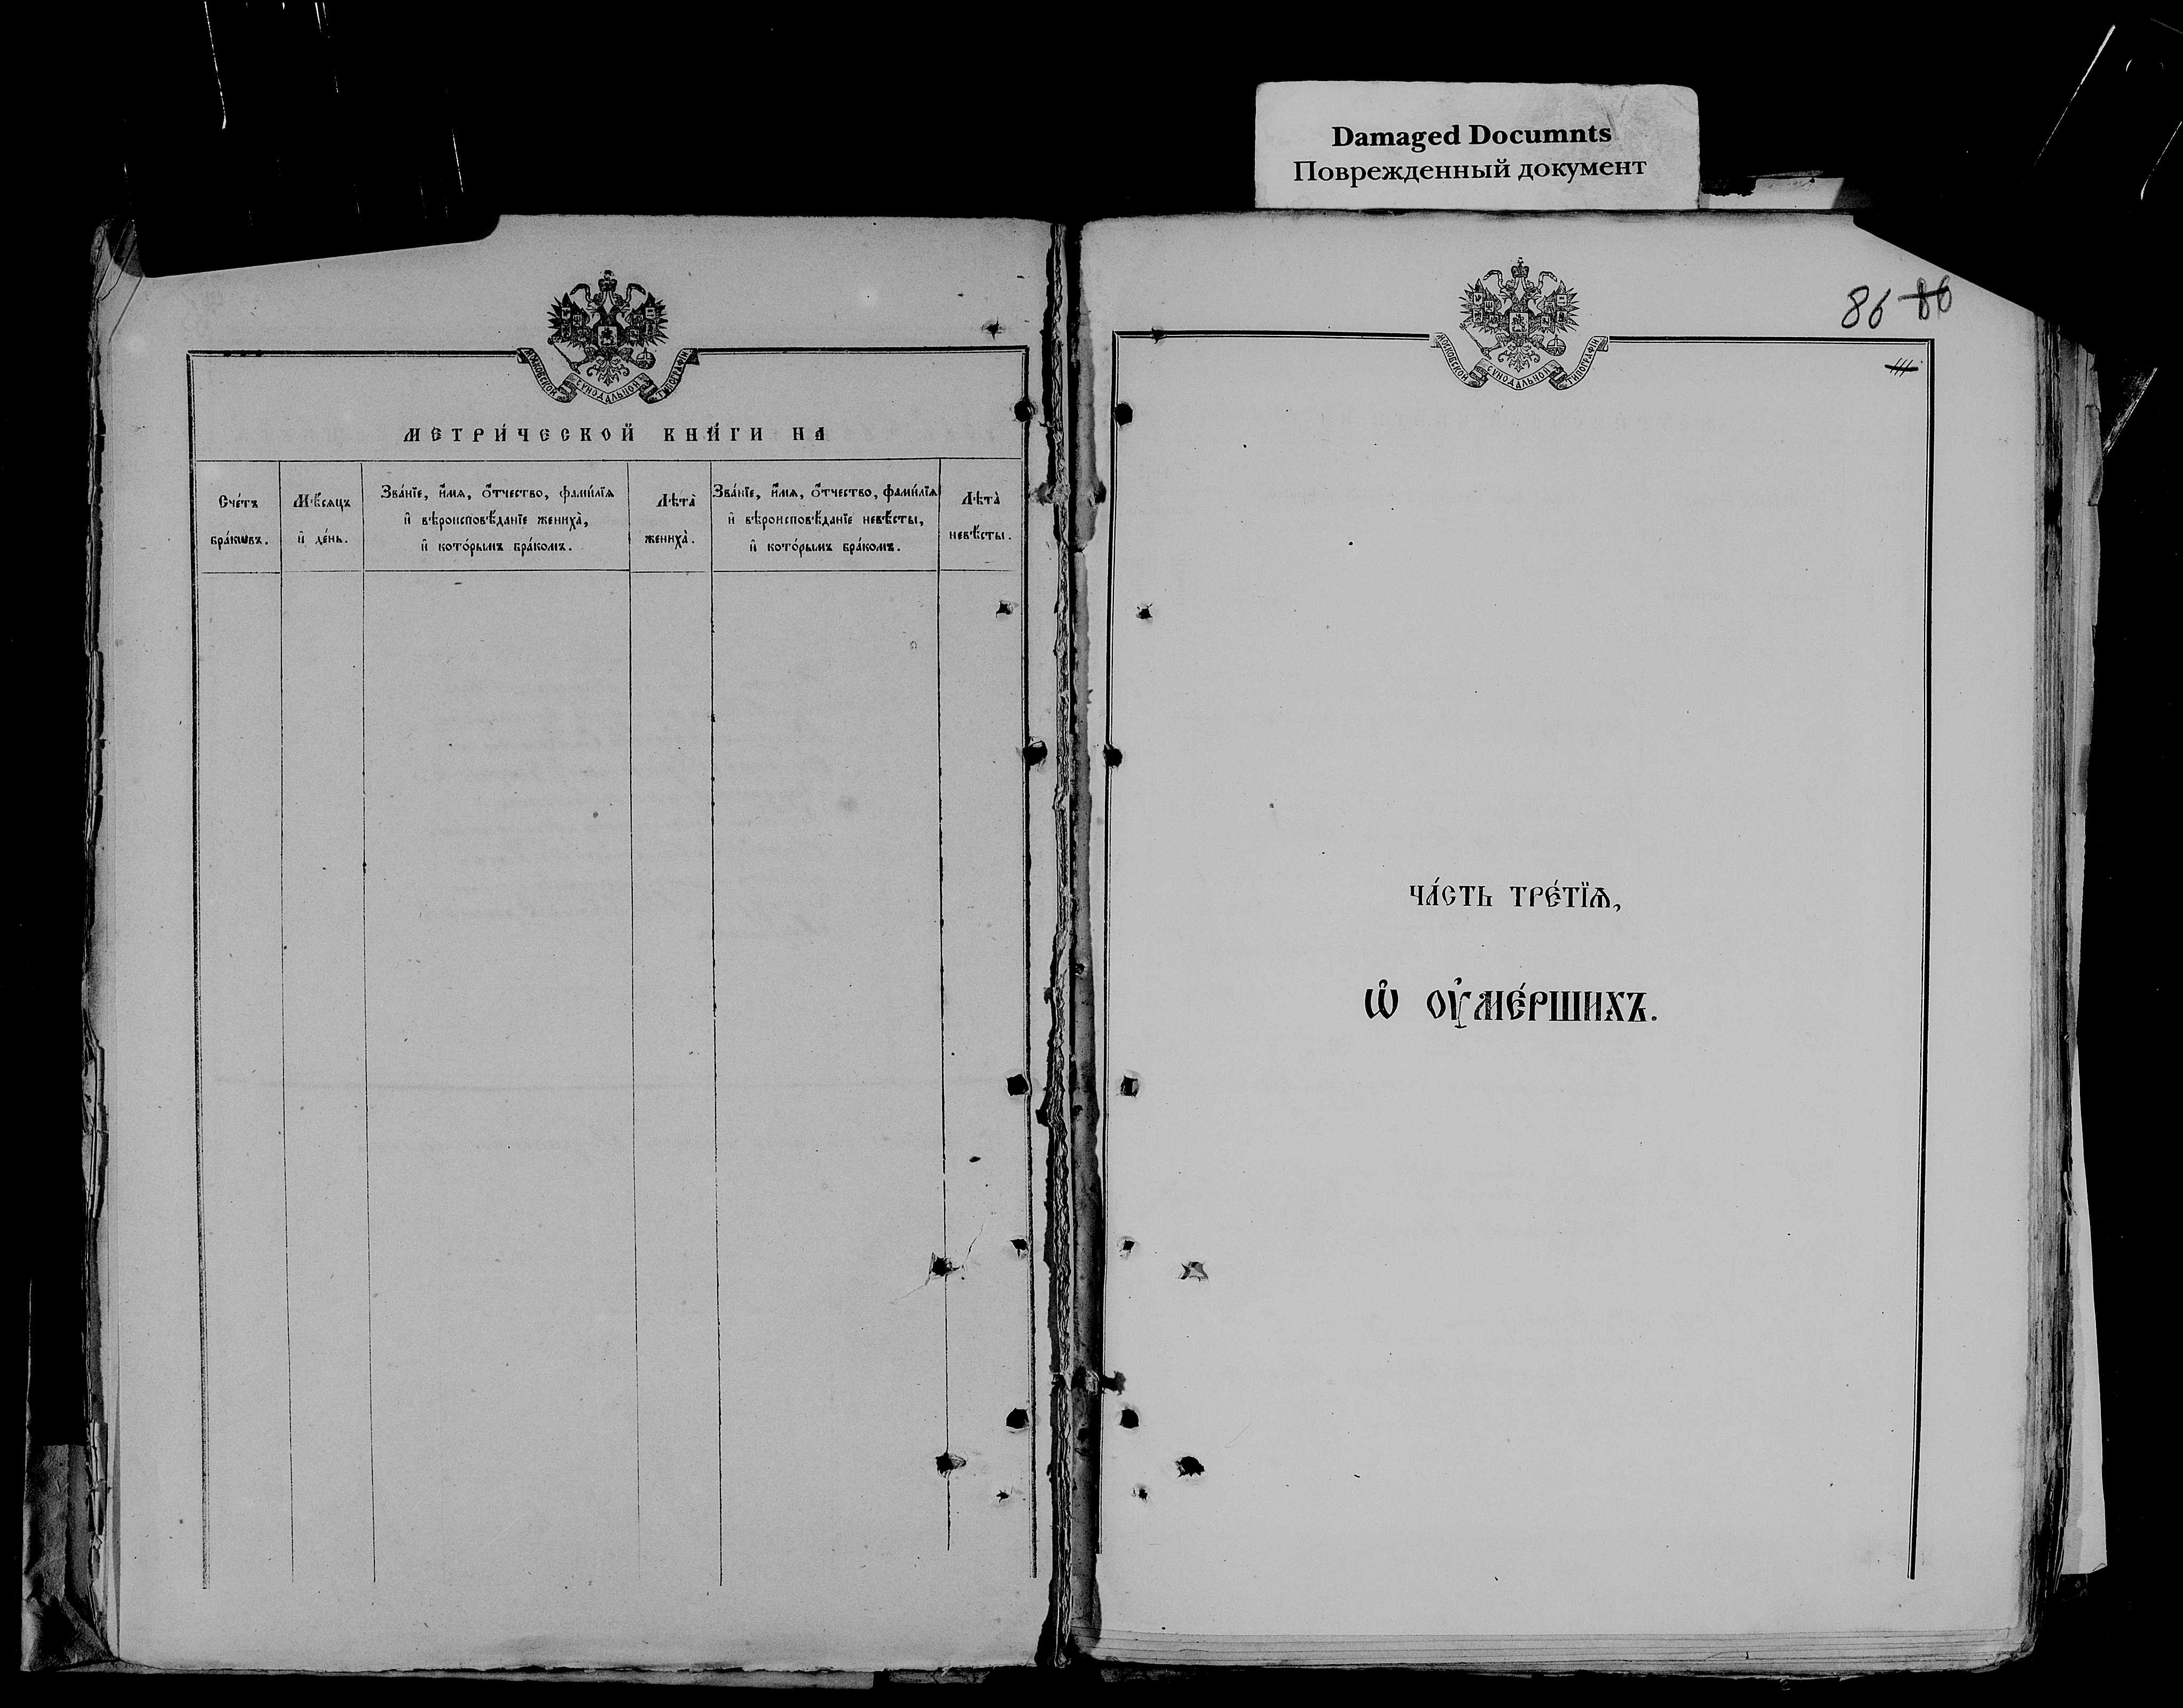 Damaged Documnts
Поврежденный документ
МОСКОВСКОЙ СѴНОДАЛЬНОЙ ТИПОГРАФІИ
МЕТРИ́ЧЕСКОЙ КНИ́ГИ НА
Сче́тъ бра́кѡвъ.
Мѣ́сяцъ и҆ де́нь.
Зва́нїе, и҆́мѧ, ѻ҆́тчество, фами́лїѧ
и҆ вѣроисповѣ́данїе жениха̀,
и҆ кото́рымъ бра́комъ.
Лѣта̀ жениха̀.
Зва́нїе, и҆́мѧ, ѻ҆́тчество, фами́лїѧ
и҆ вѣроисповѣ́данїе невѣ́сты,
и҆ кото́рымъ бра́комъ.
Лѣта̀ невѣ́сты.
86
МОСКОВСКОЙ СѴНОДАЛЬНОЙ ТИПОГРАФІИ
ЧА́СТЬ ТРЕ́ТЇѦ,
Ѡ҆ ОУ҆МЕ́РШИХЪ.